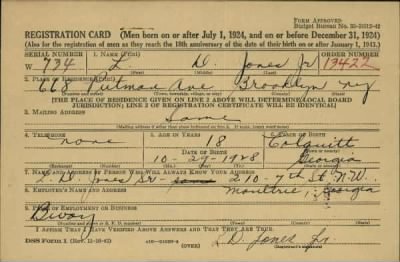 FORM APPROVED
Budget Bureau No. 33-R012-42
REGISTRATION CARD (Men born on or after July 1, 1924, and on or before December 31, 1924)
(Also for the registration of men as they reach the 18th anniversary of the date of their birth on or after January 1, 1943.)
SERIAL NUMBER 1. NAME (Print) ORDER NUMBER
W 734 L. D. Jones Jr 13422
(First) (Middle) (Last)
2. PLACE OF RESIDENCE (Print)
668 Putman Ave Brooklyn ny
(Number and street) (Town, township, village, or city) (County) (State)
[THE PLACE OF RESIDENCE GIVEN ON LINE 2 ABOVE WILL DETERMINE LOCAL BOARD
JURISDICTION; LINE 2 OF REGISTRATION CERTIFICATE WILL BE IDENTICAL]
3. MAILING ADDRESS
Same
4. TELEPHONE 5. AGE IN YEARS 6. PLACE OF BIRTH
none 18 Colquitt
DATE OF BIRTH
10-29-1928 Georgia
7. NAME AND ADDRESS OF PERSON WHO WILL ALWAYS KNOW YOUR ADDRESS
L. D. Jones Sr 210-7th St N.W.
8. EMPLOYER'S NAME AND ADDRESS
Moultrie, Georgia
9. PLACE OF EMPLOYMENT OR BUSINESS
I AFFIRM THAT I HAVE VERIFIED ABOVE ANSWERS AND THAT THEY ARE TRUE.
DSS Form 1 (Rev. 11-16-42) (OVER) L.D. Jones Jr.
(Registrant's signature)